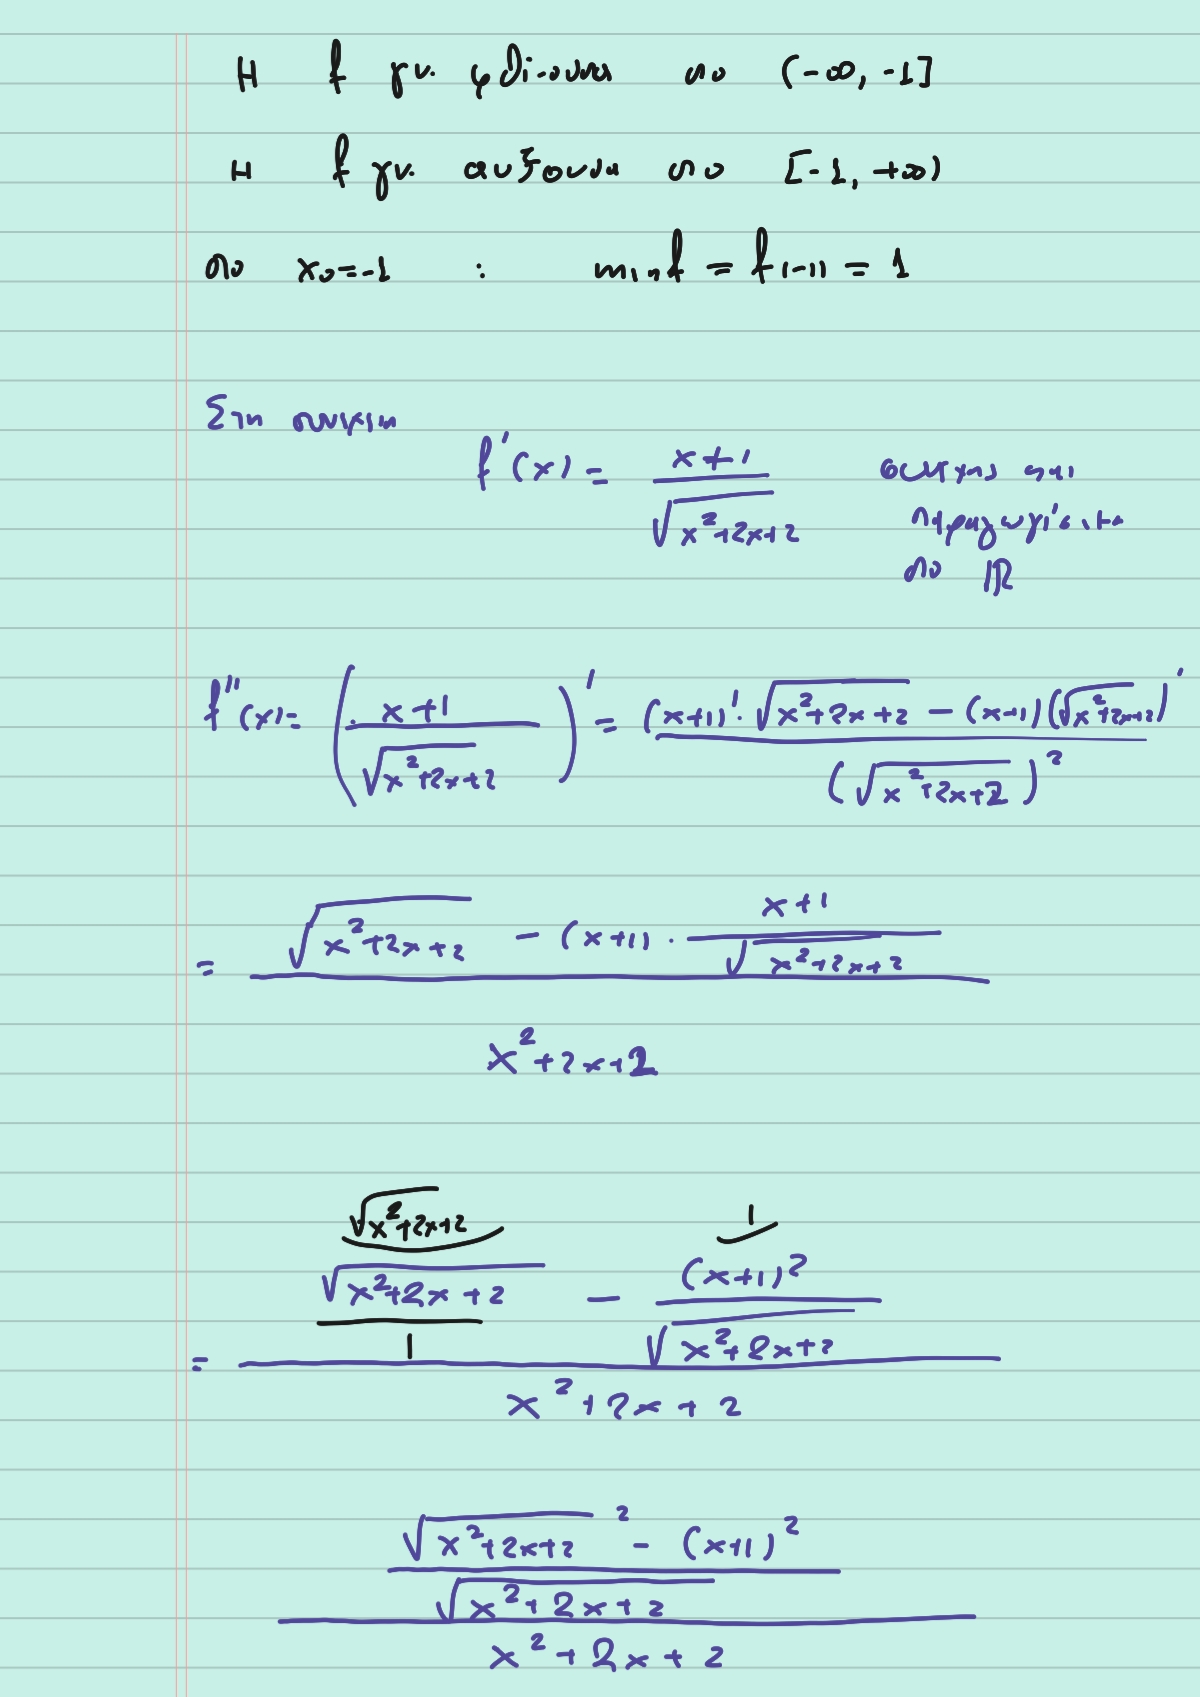 Η f γν. φθίνουσα στο (-∞, -1]
Η f γν. αύξουσα στο [-1, +∞)
στο x₀=-1 : min f = f(-1) = 1
Στη συνέχεια
f'(x) = (x+1)/√(x²+2x+2)
στο ℝ
f''(x) = ((x+1)/√(x²+2x+2))' = ((x+1)'·√(x²+2x+2) - (x+1)(√(x²+2x+2))')/(√(x²+2x+2))²
= (√(x²+2x+2) - (x+1)·(x+1)/√(x²+2x+2))/(x²+2x+2)
√(x²+2x+2) 1
= (√(x²+2x+2)/1 - (x+1)²/√(x²+2x+2))/(x²+2x+2)
((√(x²+2x+2)² - (x+1)²)/√(x²+2x+2))/(x²+2x+2)